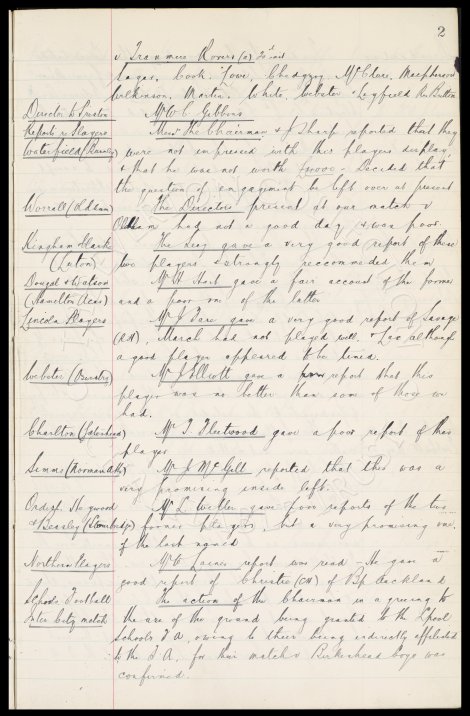 2
v Tranmere Rovers (a)
Sagar, Cook, Jones, Chedgzoy, McClure, Macpherson
Wilkinson, Martin, White, Webster
Director to Preston Mr W C Gibbins
Reports re Players Messrs the Chairman & J Sharp reported that they
Waterfield (Burnley) were not impressed with this players display
& that he was not worth £4000. Decided that
the question of engagement be left over at present
Worrall (Oldham) The Directors present at our match v
Oldham had not a good day & was poor.
Kingham & Clark The Secy gave a very good report of these
(Luton) two players & strongly recommended them
Dougal & Watson Mr H Hart gave a fair account of the former
(Hamilton Acas) and a poor one of the latter
Lincoln Players Mr J Fare gave a very good report of Savage
(RH). March had not played well. & Lax although
a good player appeared to be lame.
Webster (Bursley) Mr J Elliott gave a report that this
player was no better than some of those we
had.
Charlton (Gateshead) Mr T Fleetwood gave a poor report of this
player
Simms (Norman Ath) Mr J McGill reported that this was a
very promising inside left.
Ordish, Haywood Mr L Weller gave poor reports of the two
& Beasley (Stourbridge) former players, but a very promising one
of the last named
Northern Players Mr W report was read - He gave a
good report of Christie (CH) of Bp Auckland
School Football The action of the Chairman in agreeing to
Inter City match the use of the ground being granted to the L'pool
Schools F A, owing to their being indirectly affiliated
to the F A, for their match v Birkenhead Boys was
confirmed.